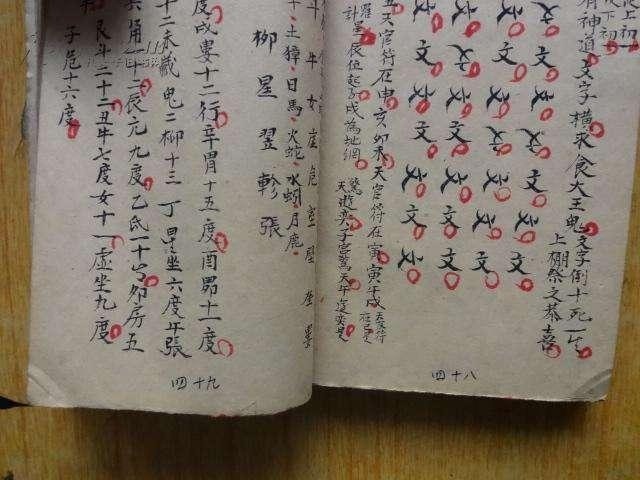 上初一
下初一
有神道文字橫求食大王鬼文字倒十死一生
上棚祭之恭喜
文文文文文文文
文文文文文文文
文文文文文文文
文文文文文文文
天官符在申亥卯未天官符在寅寅午戌天官符在巳是
計星辰位起子戌為地網
驚天遊奕子宮驚天午遊奕是
四十八
斗牛女虛危室壁奎婁
土獐日馬火蛇水蚓月鹿
柳星翌軫張
度戌婁十二行辛胃十五度酉昴十一度
十二未藏鬼二柳十三丁星坐六度午張
角一十二辰亢九度乙氐一十六卯房五
艮斗二十二丑牛七度女十一虛坐九度
子危十六度
四十九